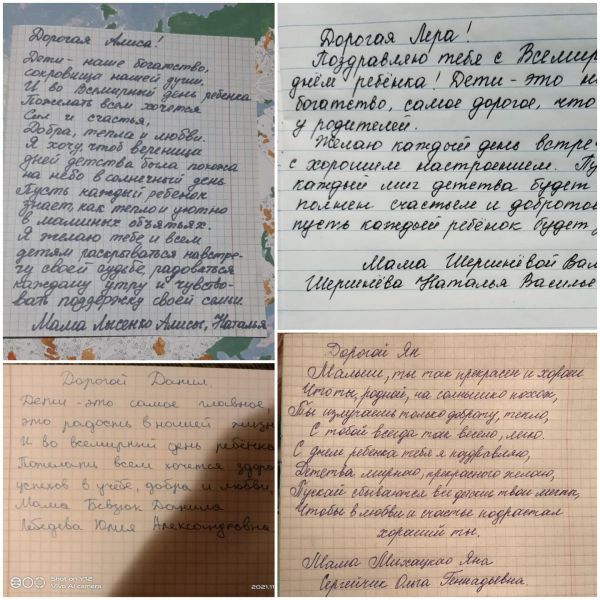 Дорогая Алиса!
Дети - наше богатство,
сокровища нашей души.
И во Всемирный день ребенка
Пожелать всем хочется
Сил и счастья,
Добра, тепла и любви.
Я хочу, чтоб вереница
дней детства была похожа
на небо в солнечный день.
Пусть каждый ребенок
знает, как тепло и уютно
в маминых объятьях.
Я желаю тебе и всем
детям раскрываться навстре-
чу своей судьбе, радоваться
каждому утру и чувство-
вать поддержку своей семьи.
Мама Лысенко Алисы, Наталья
Дорогая Лера!
Поздравляю тебя с Всемир
днём ребёнка! Дети - это на
богатство, самое дорогое, что
у родителей.
Желаю каждый день встре
с хорошим настроением. Пу
каждый миг детства будет
полнен счастьем и добротой
пусть каждый ребёнок будет
Мама Шершнёвой Вал
Шершнёва Наталья Василье
Дорогой Данил
Дети - это самое главное,
это радость в нашей жизн
И во всемирный день ребёнка
Пожелать всем хочется здоро
успехов в учёбе, добра и любви,
Мама Бевзюк Данила
Лебедева Юлия Александровна
Shot on Y12
Vivo AI camera
2021.11
Дорогой Ян
Малыш, ты так прекрасен и хорош
Что ты, родной, на солнышко похож,
Ты излучаешь только доброту, тепло,
С тобой всегда так весело, легко.
С днем ребенка тебя я поздравляю,
Детства мирного, прекрасного желаю,
Пускай сбываются все детские твои мечты,
Чтобы в любви и счастье подрастал
хороший ты.
Мама Михацко Яна
Сергейчик Ольга Геннадьевна